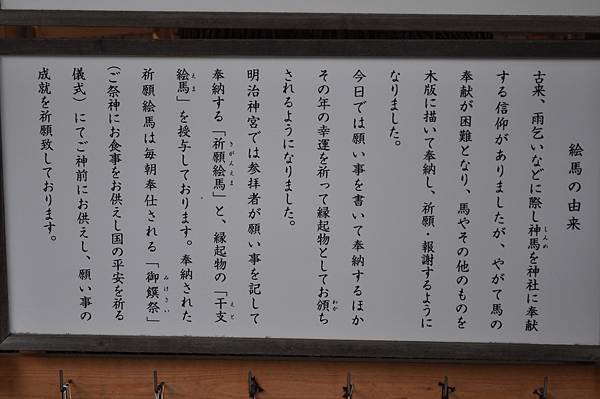 絵馬の由来
古来、雨乞いなどに際し神馬を神社に奉献
しんめ
する信仰がありましたが、やがて馬の
奉献が困難となり、馬やその他のものを
木版に描いて奉納し、祈願・報謝するように
なりました。
今日では願い事を書いて奉納するほか
その年の幸運を祈って縁起物としてお頒ち
わか
されるようになりました。
明治神宮では参拝者が願い事を記して
奉納する「祈願絵馬」と、縁起物の「干支
きがんえま
えと
絵馬」を授与しております。奉納された
えま
祈願絵馬は毎朝奉仕される「御饌祭」
みけさい
(ご祭神にお食事をお供えし国の平安を祈る
儀式)にてご神前にお供えし、願い事の
成就を祈願致しております。